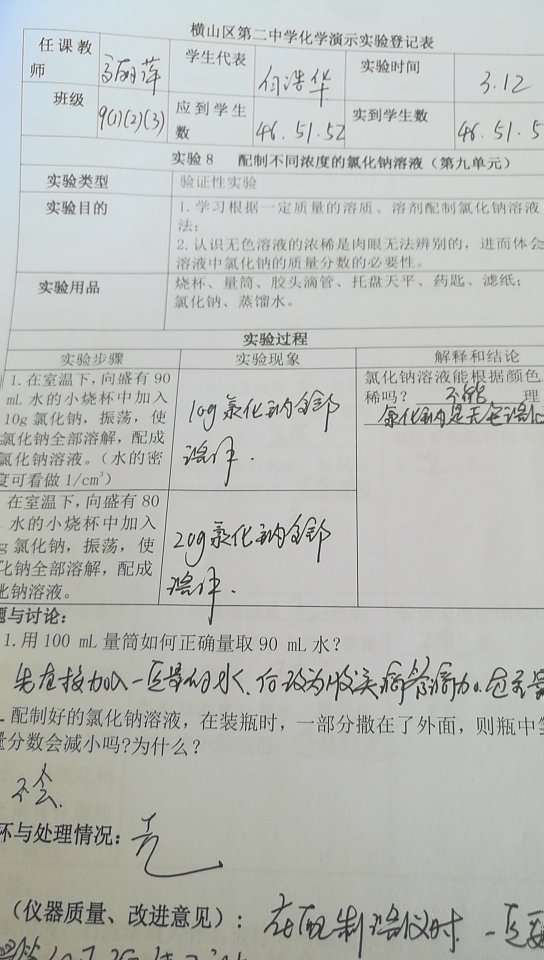 横山区第二中学化学演示实验登记表
任课教师 学生代表 浩华 实验时间 3.12
班级 9(1)(2)(3) 应到学生数 46.51.52 实到学生数 46.51.5
实验8 配制不同浓度的氯化钠溶液（第九单元）
实验类型 验证性实验
实验目的 1.学习根据一定质量的溶质、溶剂配制氯化钠溶液
法；
2.认识无色溶液的浓稀是肉眼无法辨别的，进而体会
溶液中氯化钠的质量分数的必要性。
实验用品 烧杯、量筒、胶头滴管、托盘天平、药匙、滤纸；
氯化钠、蒸馏水。
实验过程
实验步骤 实验现象 解释和结论
1.在室温下，向盛有90
mL水的小烧杯中加入
10g氯化钠，振荡，使
氯化钠全部溶解，配成
氯化钠溶液。（水的密
度可看做1/cm³）
10g氯化钠全部
溶解.
氯化钠溶液能根据颜色
稀吗？ 不能 理
氯化钠是无色溶
在室温下，向盛有80
水的小烧杯中加入
g氯化钠，振荡，使
化钠全部溶解，配成
化钠溶液。
20g氯化钠全部
溶解.
题与讨论：
1.用100 mL量筒如何正确量取90 mL水？
先直接加入一定量的水、后改为胶头滴管滴加
配制好的氯化钠溶液，在装瓶时，一部分撒在了外面，则瓶中
量分数会减小吗?为什么？
不会.
坏与处理情况：无
（仪器质量、改进意见）：在配制溶液时 一定要